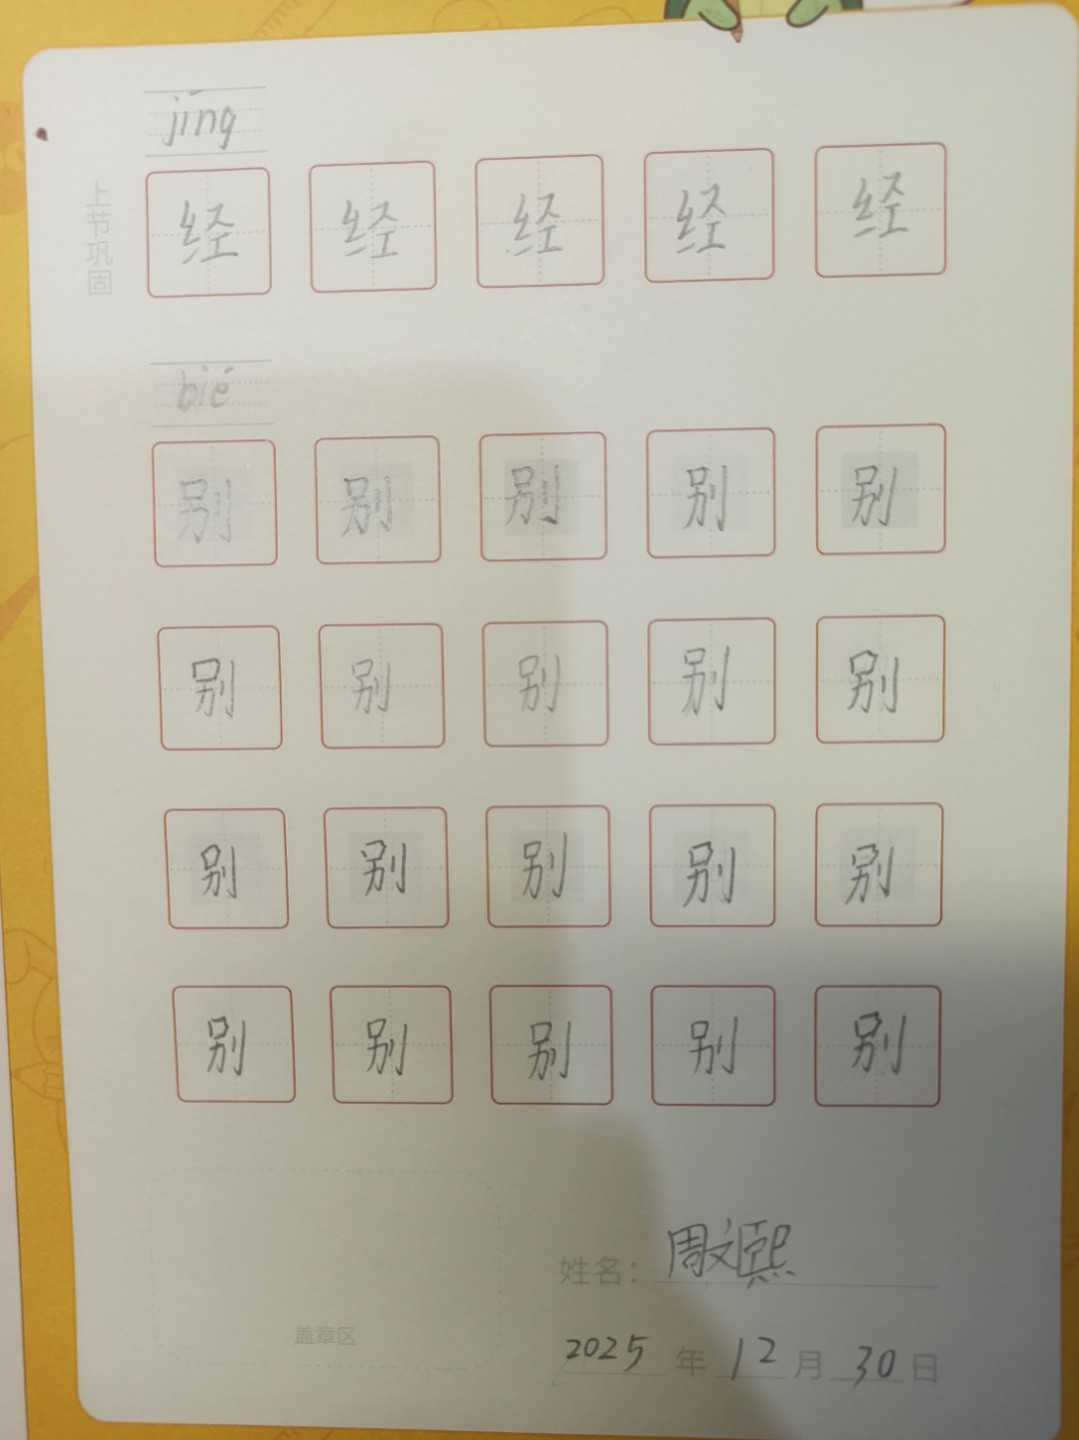 jīng
上节巩固
经 经 经 经 经
bié
别 别 别 别 别
别 别 别 别 别
别 别 别 别 别
别 别 别 别 别
姓名：周文熙
盖章区
2025 年 12 月 30 日